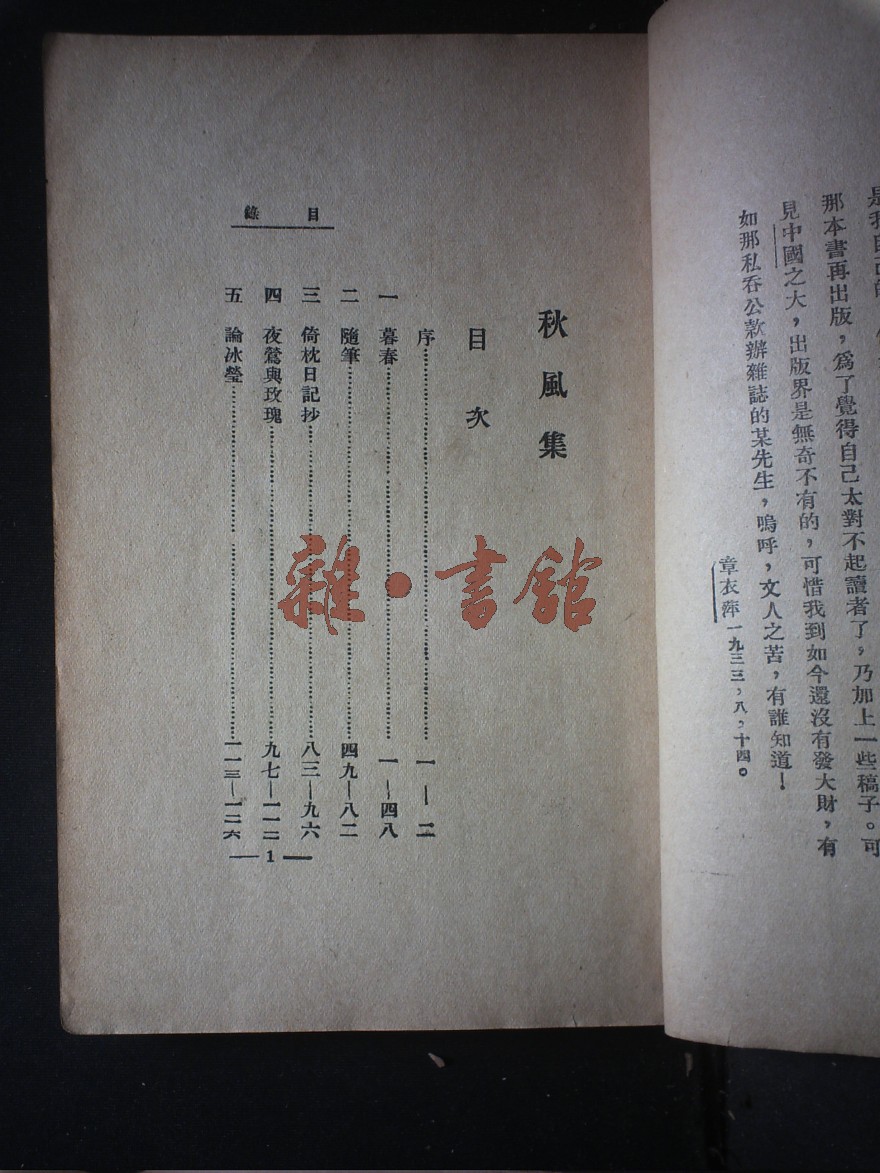 那本書再出版，爲了覺得自己太對不起讀者了，乃加上一些稿子。可
見中國之大，出版界是無奇不有的，可惜我到如今還沒有發大財，有
如那私吞公款辦雜誌的某先生，嗚呼，文人之苦，有誰知道！
章衣萍一九三三，八，十四。
目錄
秋風集
目次
序…………一—二
一 暮春…………一—四八
二 隨筆…………四九—八二
三 倚枕日記抄…………八三—九六
四 夜鶯與玫瑰…………九七—一一二
五 論冰瑩…………一一三—一二六
— 1 —
雜·書館